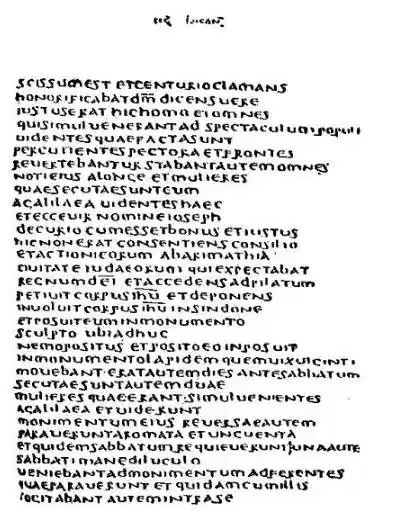 sec lucan
scissum est et centurio clamans
honorificabat dm̄ dicens uere
iustus erat hic homo et omnes
qui simul uenerant ad spectaculum populi
uidentes quae facta sunt
percutientes pectora et frontes
reuertebantur stabant autem omnes
noti eius a longe et mulieres
quae secutae sunt eum
a galilaea uidentes haec
et ecce uir nomine ioseph
decurio cum esset bonus et iustus
hic non erat consentiens consilio
et actioni eorum ab arimathia
ciuitate iudaeorum qui expectabat
regnum dei et accedens ad pilatum
petiuit corpus ihū et deponens
inuoluit corpus ihū in sindone
et posuit eum in monumento
sculpto ubi adhuc
nemo positus et posito eo inposuit
in monumento lapidem quem uix uiginti
mouebant erat autem dies ante sabbatum
secutae sunt autem duae
mulieres quae erant simul uenientes
a galilaea et uiderunt
monimentum eius reuersae autem
parauerunt aromata et unguenta
et quidem sabbatum requieuerunt una autem
sabbati mane diluculo
ueniebant ad monimentum adferentes
quae parauerunt et quidam cum illis
cogitabant autem intra se